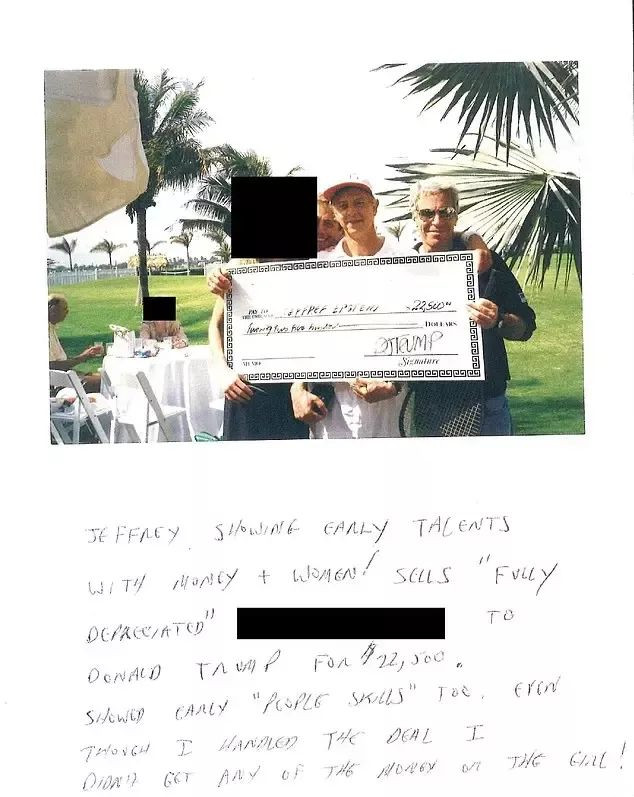 PAY TO
THE ORDER OF JEFFREY EPSTEIN $22,500.00
Twenty two five hundred DOLLARS
DJTRUMP
MEMO Signature
JEFFREY SHOWING EARLY TALENTS
WITH MONEY + WOMEN! SELLS "FULLY
DEPRECIATED" TO
DONALD TRUMP FOR $22,500.
SHOWED EARLY "PEOPLE SKILLS" TOO. EVEN
THOUGH I HANDLED THE DEAL I
DIDN'T GET ANY OF THE MONEY OR THE GIRL!